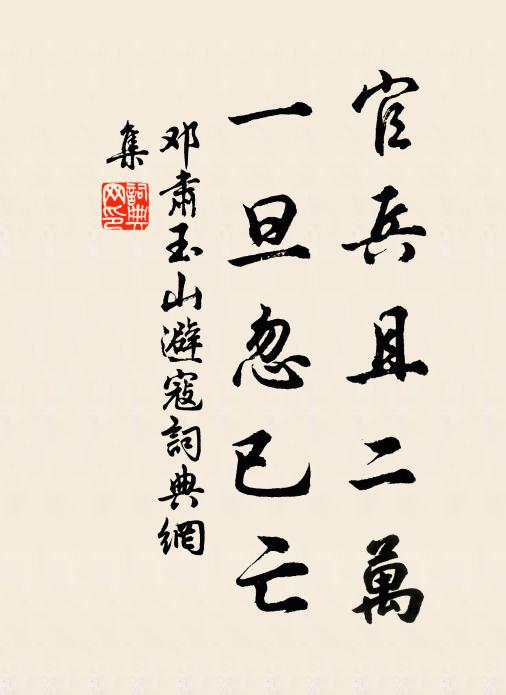 官兵且二萬
一旦忽已亡
邓肅玉山避寇詞典網
集
詞典网印